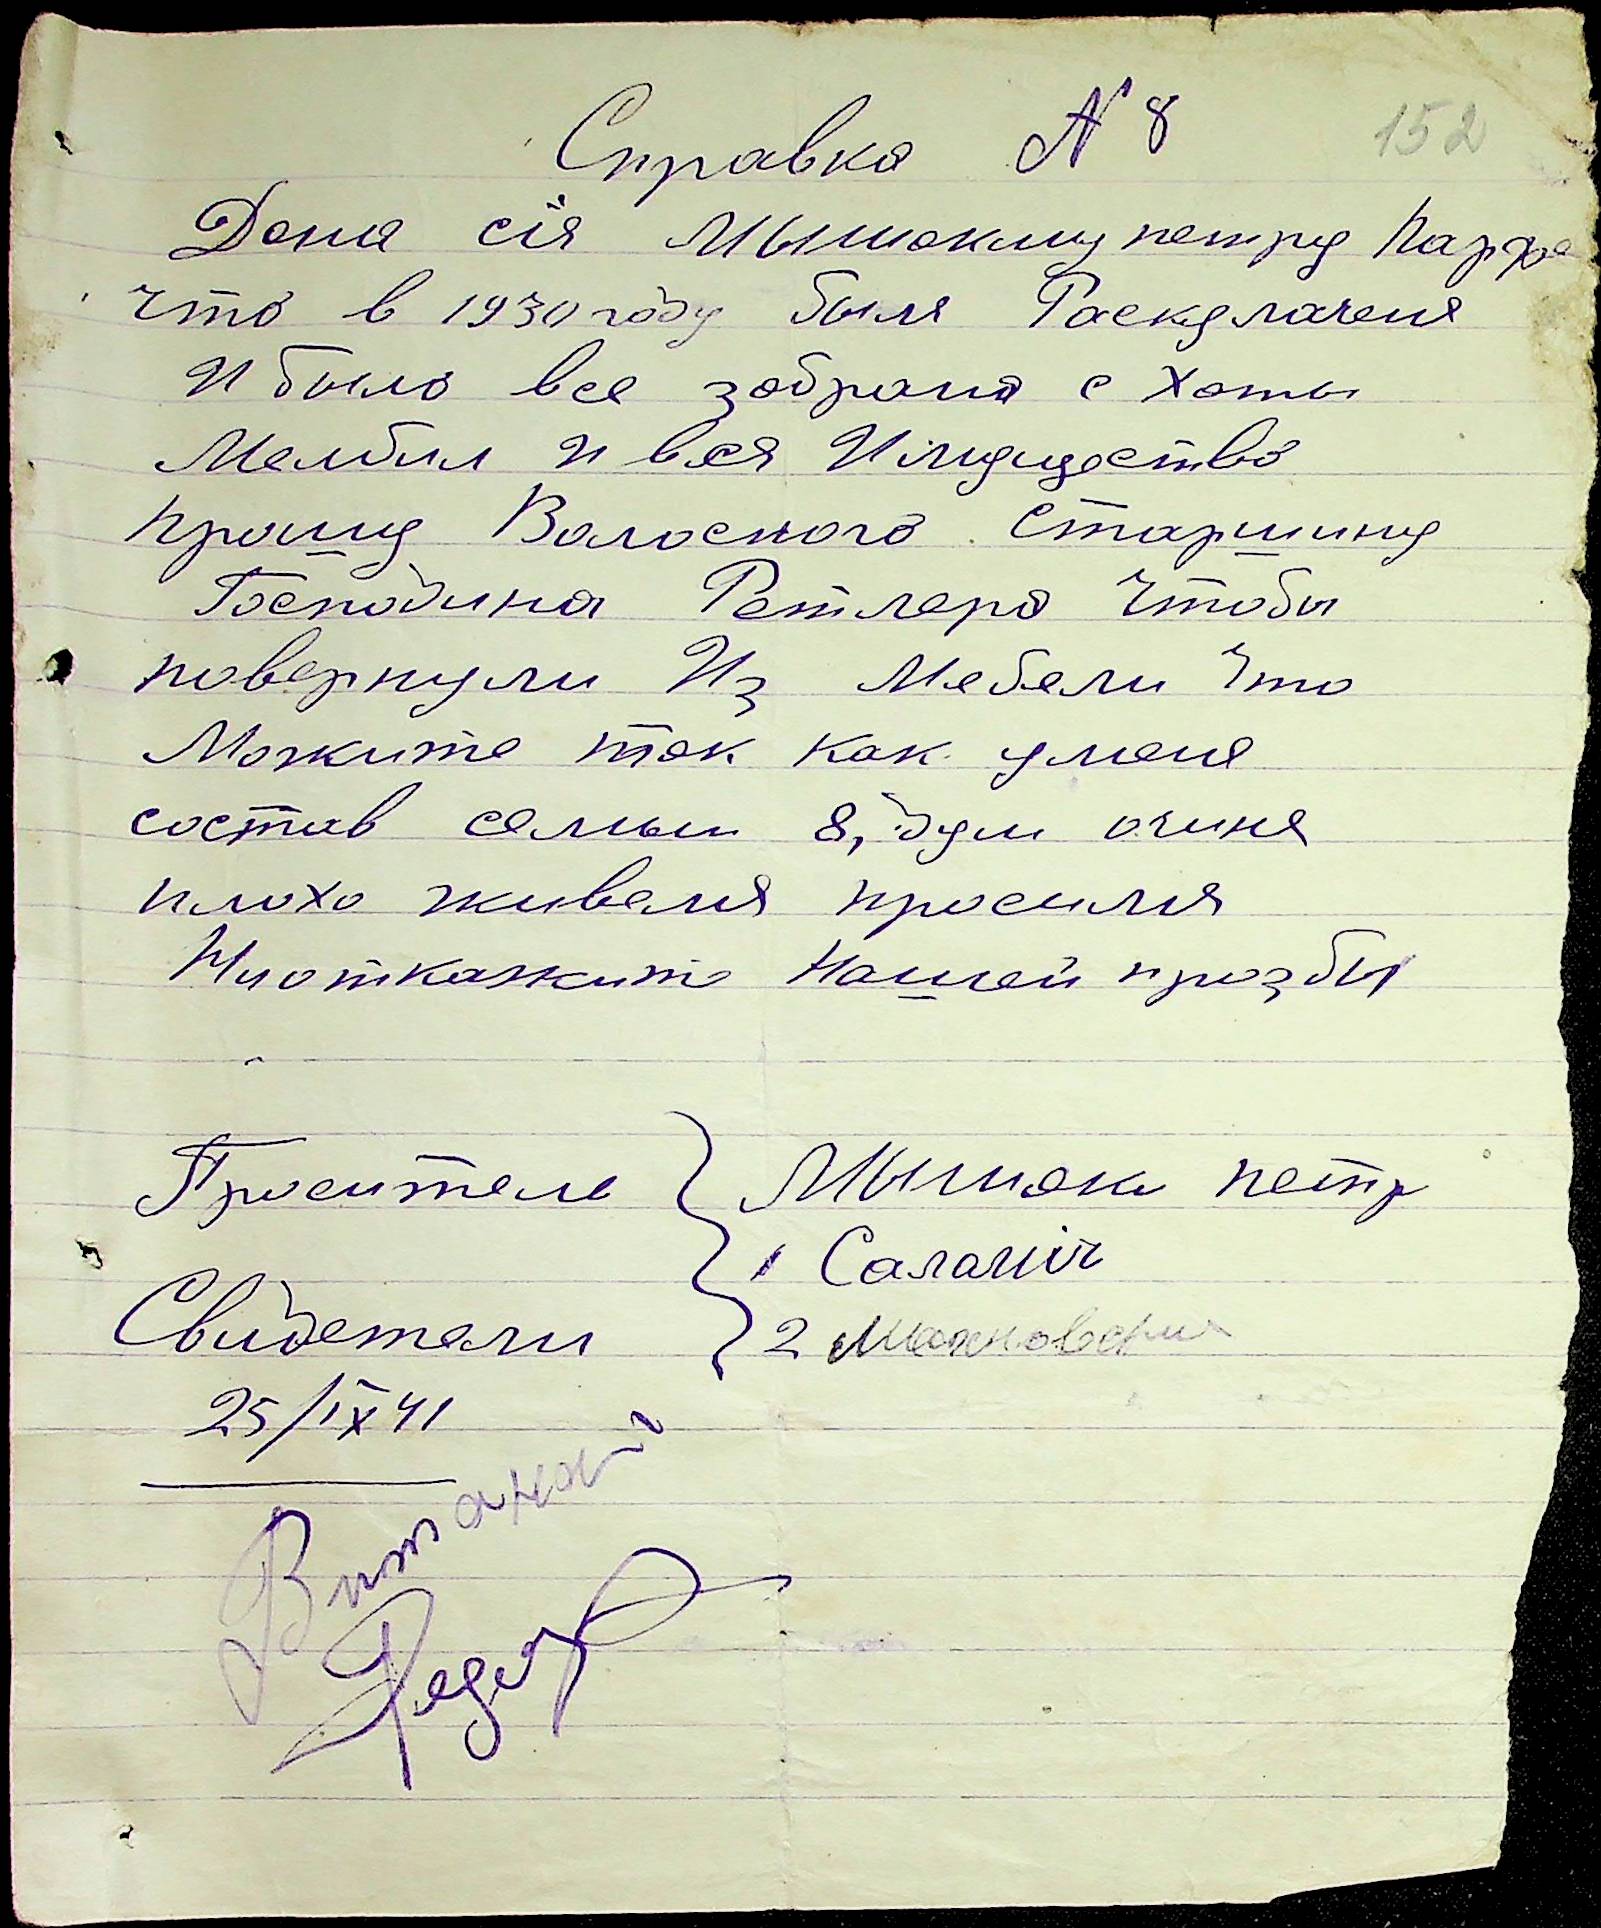 Справка N 8
152
Дона сія Мышакиму петру Парфе
что в 1930 году быля Раскулаченя
и было все зобраня с хоты
Мелбил и вся Имущество
прошу Волосного Старшину
Господина Ретлера Чтобы
повернули Из Мебели Что
Можите так как уменя
состав семьи 8, душ очиня
плохо живеля просиля
Ниоткажите Нашей прозбы
Проситель Мышак петр
Свидетели
1 Саланич
2
25/IX 41
Федор